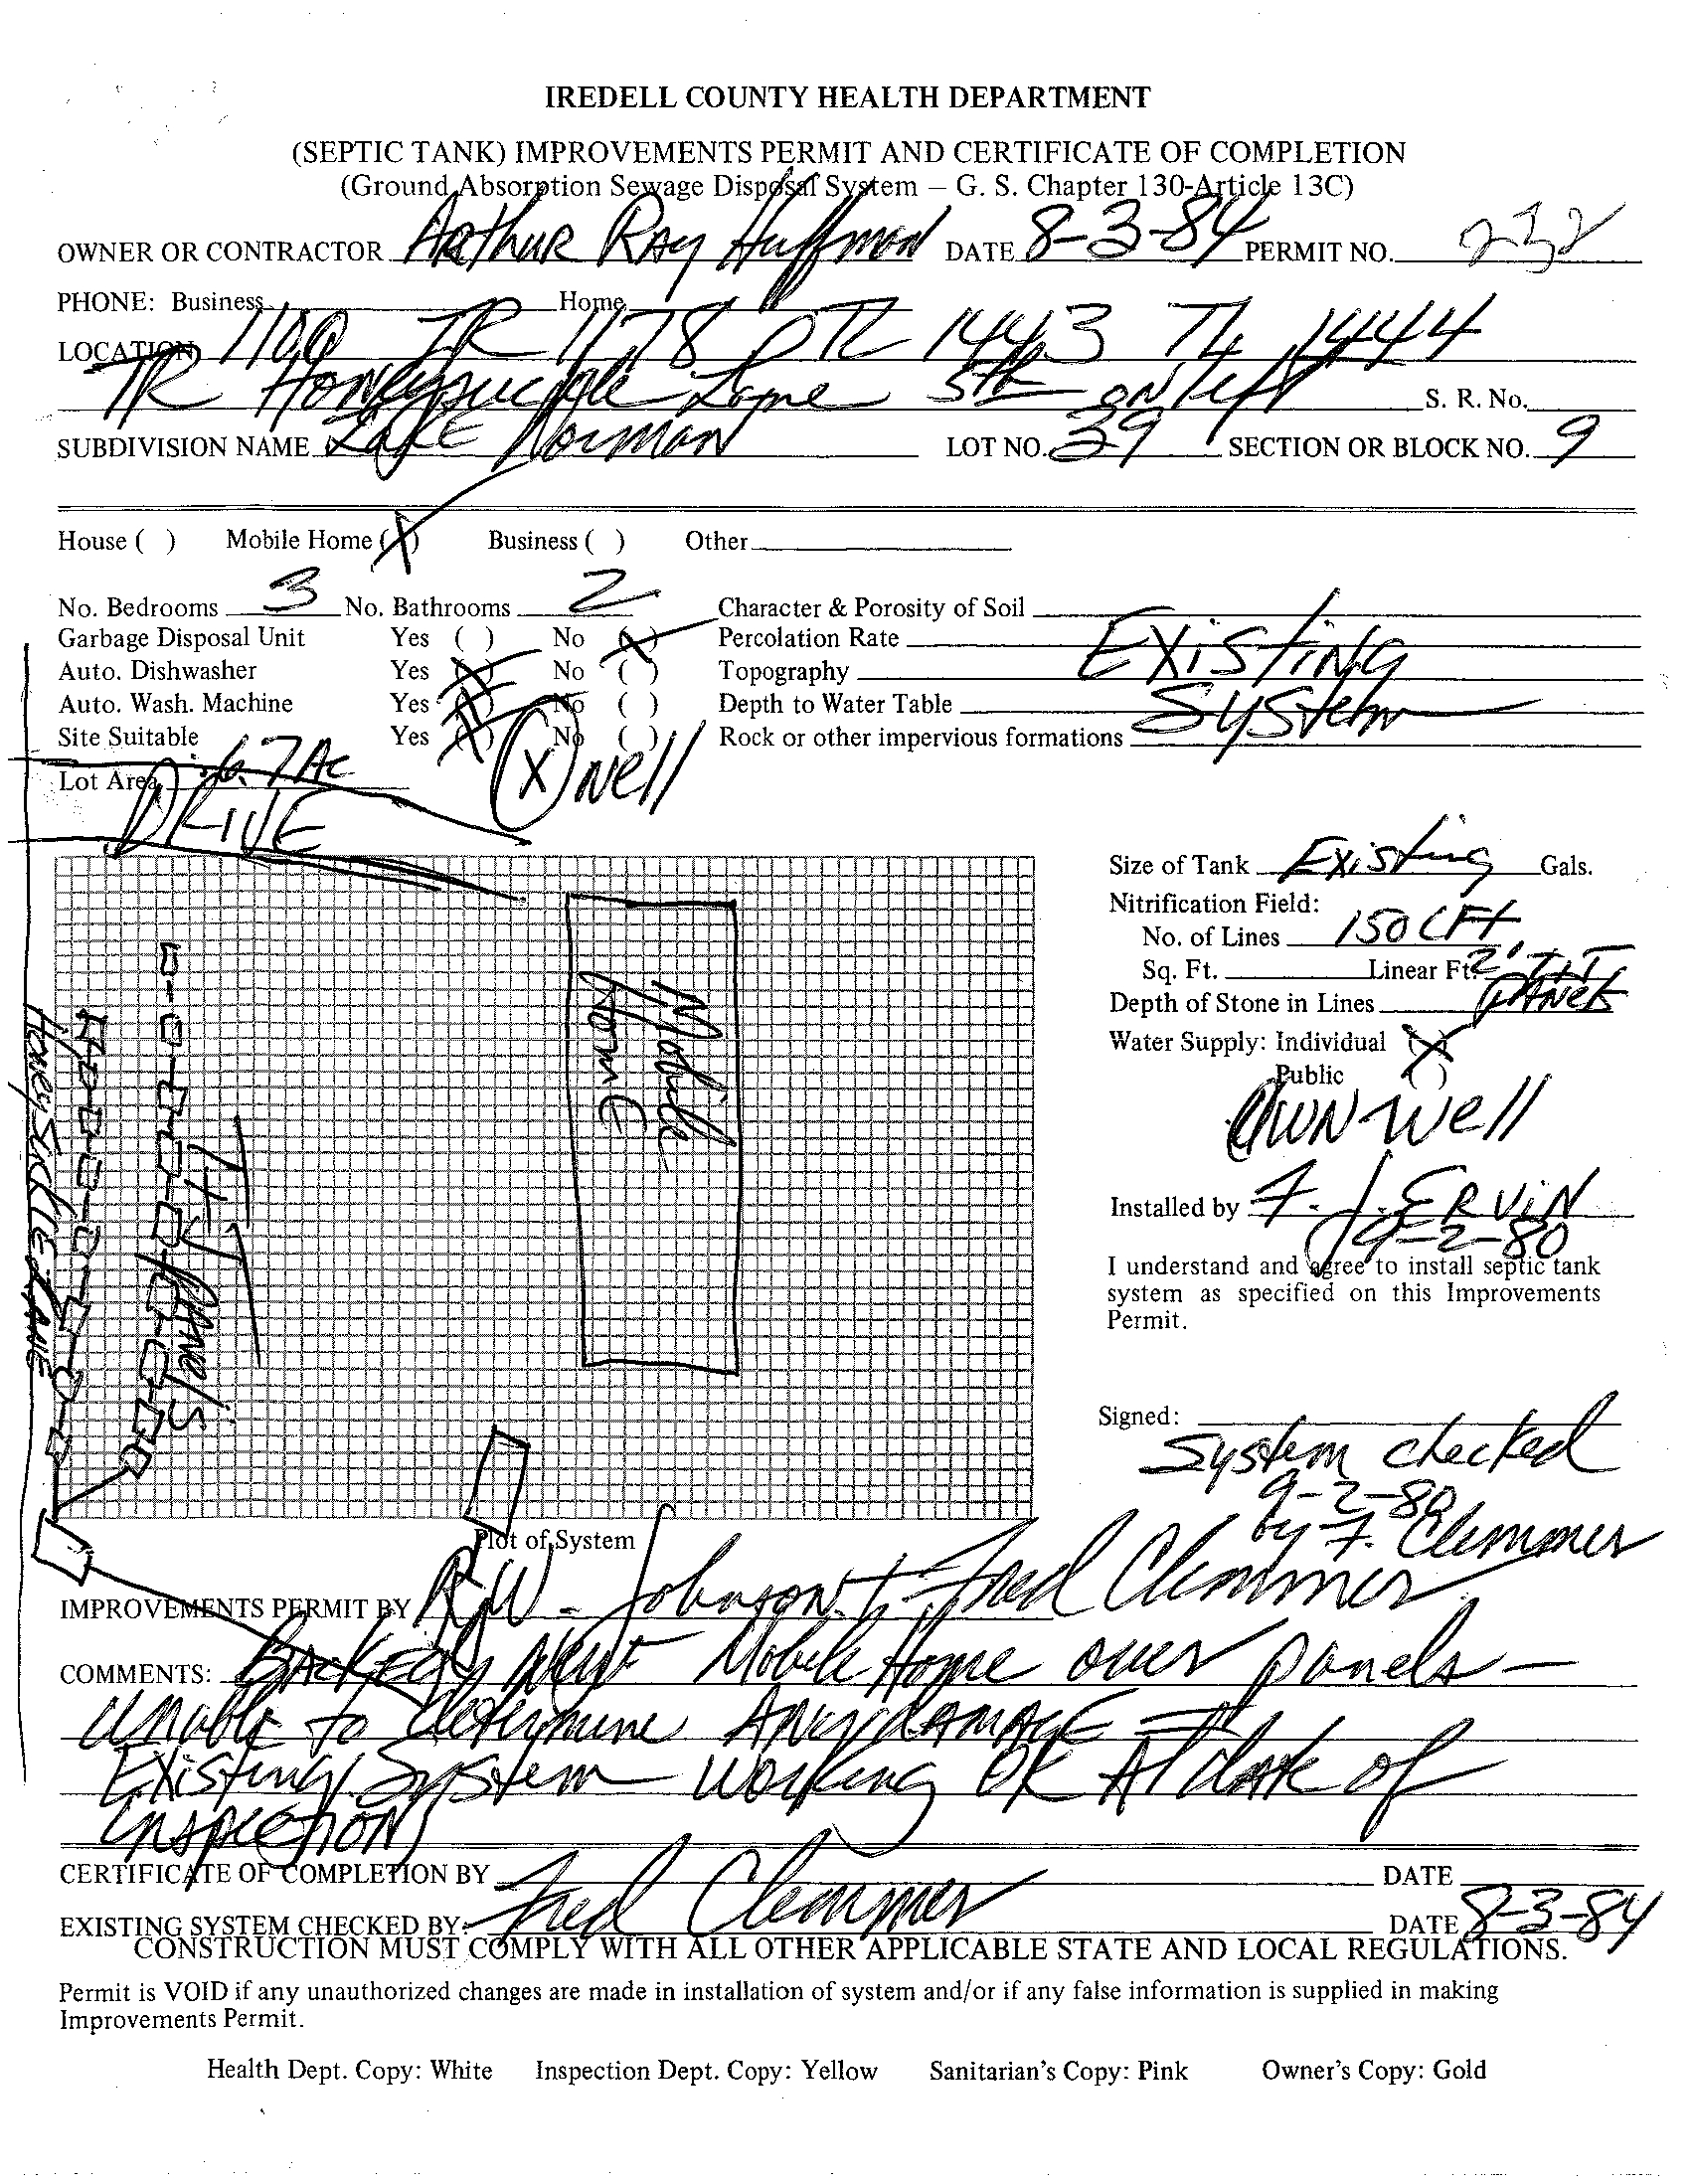 IREDELL COUNTY HEALTH DEPARTMENT
(SEPTIC TANK) IMPROVEMENTS PERMIT AND CERTIFICATE OF COMPLETION
(Ground Absorption Sewage Disposal System – G. S. Chapter 130-Article 13C)
OWNER OR CONTRACTOR Arthur Ray Huffman DATE 8-3-84 PERMIT NO. 232
PHONE: Business Home
LOCATION 1100 TR 1178 1443 TL 1444
TR Honeysuckle Lane 5th on left S. R. No.
SUBDIVISION NAME Lake Norman LOT NO. 39 SECTION OR BLOCK NO. 9
House ( ) Mobile Home (X) Business ( ) Other
No. Bedrooms 3 No. Bathrooms 2 Character & Porosity of Soil
Garbage Disposal Unit Yes ( ) No (X) Percolation Rate Existing
Auto. Dishwasher Yes (X) No ( ) Topography
Auto. Wash. Machine Yes (X) No ( ) Depth to Water Table System
Site Suitable Yes (X) No ( ) Rock or other impervious formations
Lot Area .67 Ac (X) Well
DRIVE
Size of Tank Existing Gals.
Nitrification Field:
No. of Lines 150 LFT
Sq. Ft. Linear Ft. 2' T+T
Depth of Stone in Lines Panels
Water Supply: Individual (X)
Public ( )
Own well
Installed by F. J. ERVIN
9-2-80
I understand and agree to install septic tank
system as specified on this Improvements
Permit.
Signed:
System checked
9-2-80
by F. Clemmer
Mobile
Home
T+T Panels
Honeysuckle Lane
Plot of System
IMPROVEMENTS PERMIT BY R.W. Johnson + Fred Clemmer
COMMENTS: Backed Mobile Home over panels –
unable to determine Any damage –
Existing System working OK At date of
inspection
CERTIFICATE OF COMPLETION BY DATE
EXISTING SYSTEM CHECKED BY: Fred Clemmer DATE 8-3-84
CONSTRUCTION MUST COMPLY WITH ALL OTHER APPLICABLE STATE AND LOCAL REGULATIONS.
Permit is VOID if any unauthorized changes are made in installation of system and/or if any false information is supplied in making
Improvements Permit.
Health Dept. Copy: White Inspection Dept. Copy: Yellow Sanitarian's Copy: Pink Owner's Copy: Gold